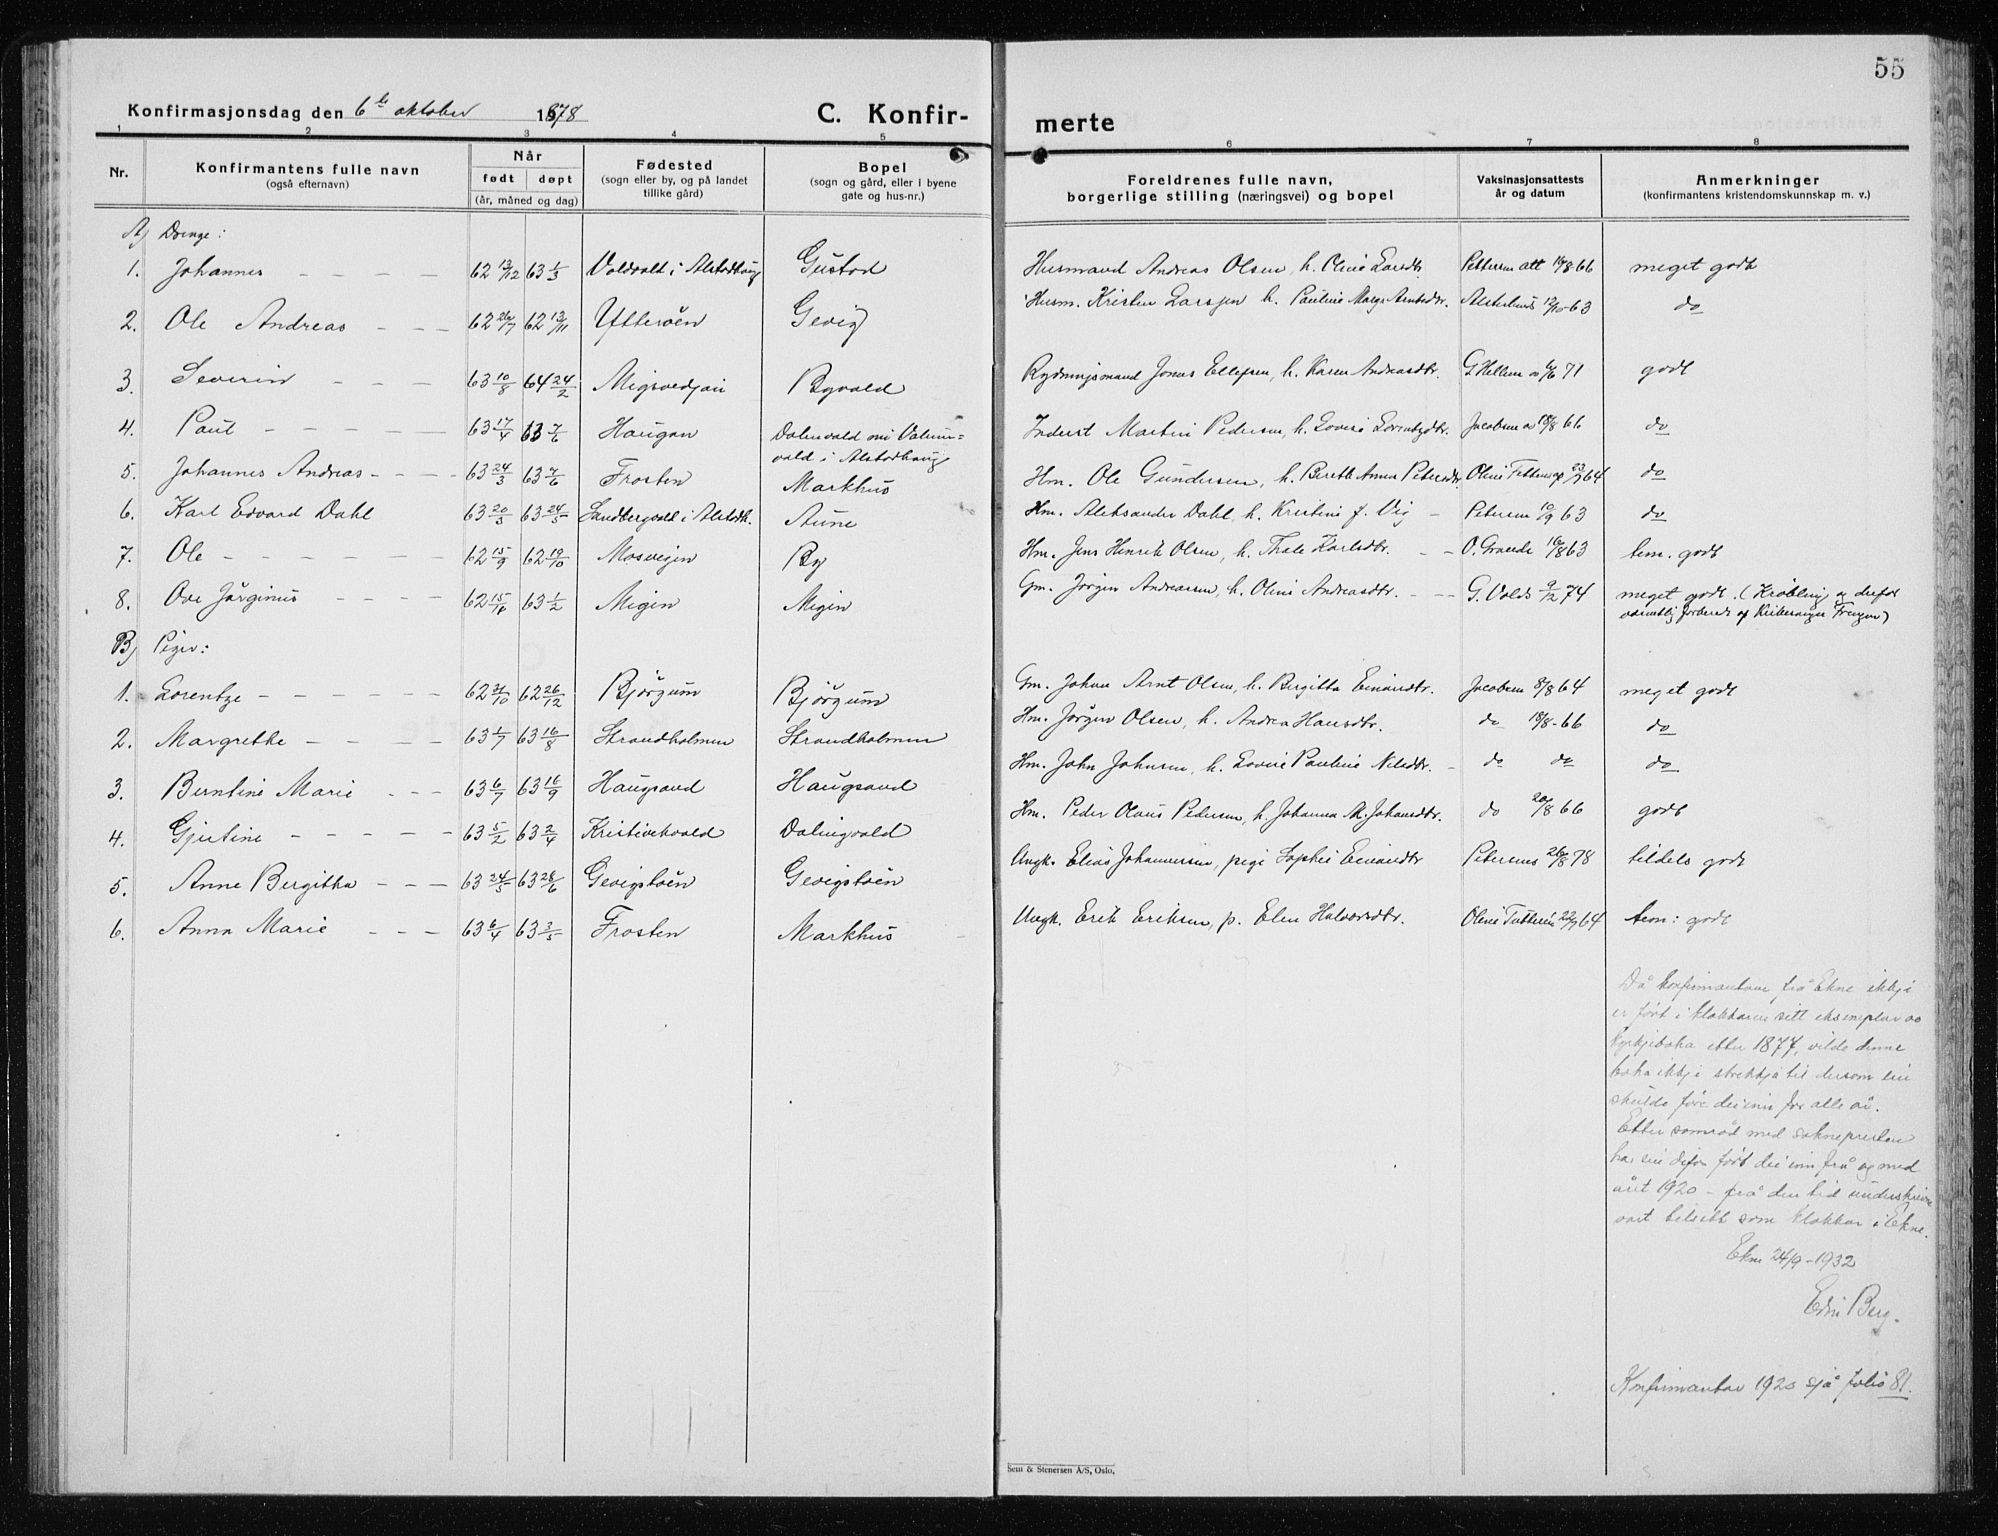 55
Konfirmasjonsdag den 6te oktober 1878
C. Konfirmerte
1 2 3 4 5 6 7 8
Nr. Konfirmantens fulle navn (også efternavn) Når født døpt (år, måned og dag) Fødested (sogn eller by, og på landet tillike gård) Bopel (sogn og gård, eller i byene gate og hus-nr.) Foreldrenes fulle navn, borgerlige stilling (næringsvei) og bopel Vaksinasjonsattests år og datum Anmerkninger (konfirmantens kristendomskunnskap m. v.)
A) Drenge:
1. Johannes 62 13/12 63 1/3 i Alstadhaug Gustad Husmand Andreas Olsen, h. Oline Larsdtr. Pettersen att 16/8 66 meget godt
2. Ole Andreas 62 26/7 62 13/11 Ytterøen Gevig Husm. Kristen Larsen h. Pauline Margr. 12/10-63 do
3. Severin 63 10/8 64 24/2 Byvald Rydningsmand Jonas Ellefsen, h. Karen Andreasdtr. G. Hellem 71 godt
4. Paul 63 17/4 63 7/6 Haugan i Alstadhaug Inderst Martin Pedersen, h. Lovise Jacobsen 18/8 66 do
5. Johannes Andreas 63 24/3 63 7/6 Frosten Markhus Hm. Ole Gundersen, h. Berette Anna Petersdtr. Oline 64 do
6. Karl Edvard Dahl 63 20/3 63 24/5 Sandbergvald i Alstadh. Aune Hm. Aleksander Dahl, h. Kristine f. Vig Petersen 10/9 63 do
7. Ole 62 15/9 62 19/10 Mosvigen By Hm. Jens Henrik Olsen, h. Thale Karlsdtr. O. Grande 16/8 63 tem. godt
8. Ove Jørginus 62 15/ 63 1/2 Migin Migin Gm. Jørgen Andreassen, h. Oline Andreasdtr. G. Valds 9/12 74 meget godt. (Krøbling og derfor
forbered. af Kirkesanger Frengen)
B) Piger:
1. Lorentze 62 /10 62 26/12 Bjørgum Bjørgum Gm. Johan Arnt Olsen, h. Bergitta Jacobsen 8/8 64 meget godt
2. Margrethe 63 1/7 63 16/8 Strandholmen Strandholmen Hm. Jørgen Olsen, h. Andrea Hansdtr. do 18/8-66 do
3. Berntine Marie 63 6/7 63 16/9 Haugsand Haugsand Hm. John Johnsen, h. Lovise Pauline Nilsdtr. do do do
4. Gjertine 63 5/2 63 2/4 Dalingvald Hm. Peder Olaus Pedersen, h. Johanna M. Johansdtr. do 20/8 66 godt
5. Anne Bergitha 63 24/5 63 28/6 Gevigstøen Gevigstøen Ungk. Elias Johannesen, pige Sophie Petersens 26/8 78 tildels godt
6. Anna Marie 63 6/4 63 3/5 Frosten Markhus Ungk. Erik Eriksen, p. Elen Halvorsdtr. Oline 22/7 64 tem: godt
Då konfirmantane frå Ekne ikkje
er ført i klokkaren sitt eksemplar av
kyrkjeboka etter 1877, vilde denne
boka ikkje strekkja til dersom ein
skulde føre dei inn for alle år.
Etter samråd med soknepresten
har ein difor ført dei inn frå og med
året 1920 – frå den tid underskrivne
vart tilsett som klokkar i Ekne.
Ekne 24/9-1932
Edin Berg.
Konfirmantar 1920 sjå folio 81.
Sem & Stenersen A/S, Oslo.